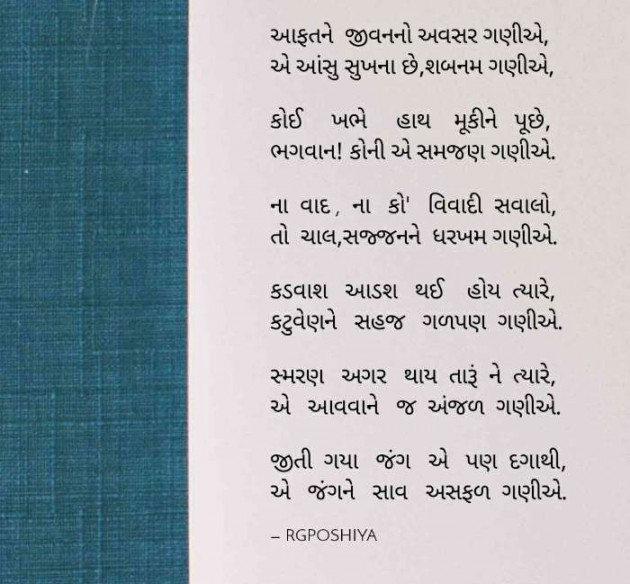 આફતને જીવનનો અવસર ગણીએ,
એ આંસુ સુખના છે,શબનમ ગણીએ,
કોઈ ખભે હાથ મૂકીને પૂછે,
ભગવાન! કોની એ સમજણ ગણીએ.
ના વાદ, ના કો' વિવાદી સવાલો,
તો ચાલ,સજ્જનને ધરખમ ગણીએ.
કડવાશ આડશ થઈ હોય ત્યારે,
કટુવેણને સહજ ગળપણ ગણીએ.
સ્મરણ અગર થાય તારૂં ને ત્યારે,
એ આવવાને જ અંજળ ગણીએ.
જીતી ગયા જંગ એ પણ દગાથી,
એ જંગને સાવ અસફળ ગણીએ.
– RGPOSHIYA